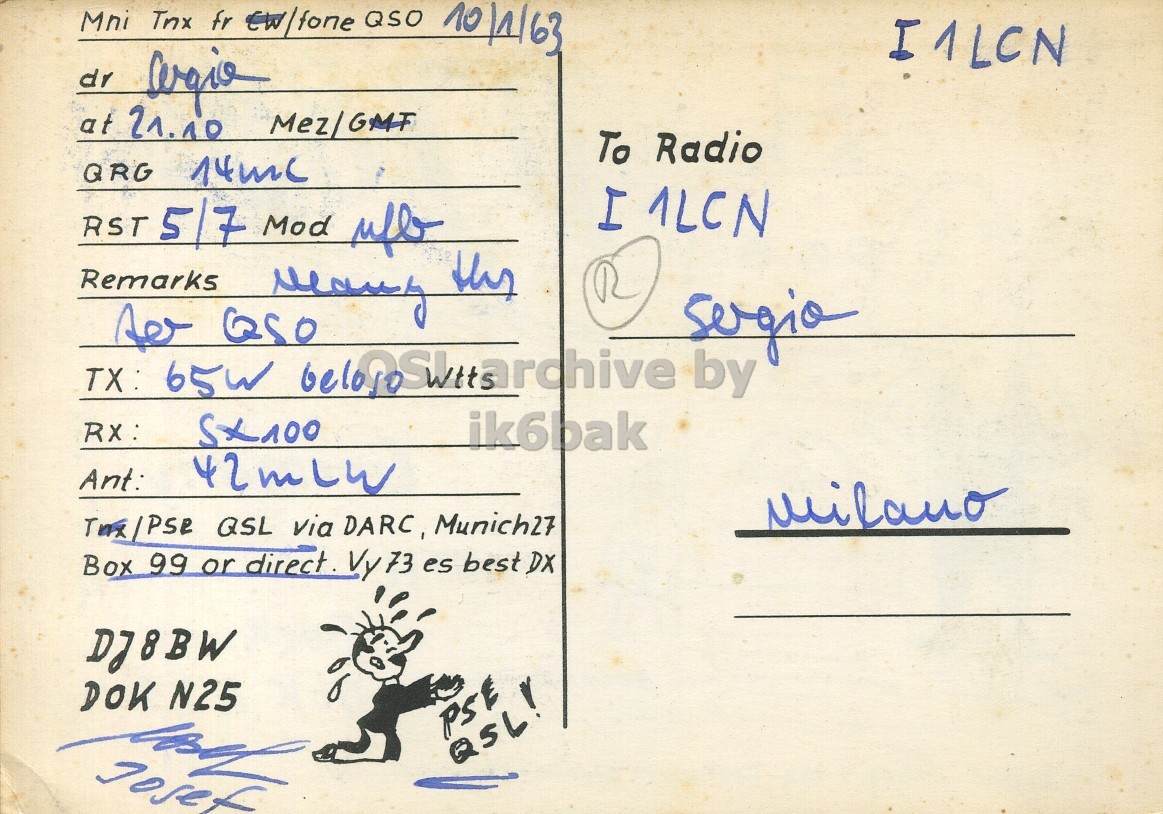 Mni Tnx fr CW/fone QSO 10/1/63
dr Sergio
at 21.10 Mez/GMT
QRG 14mc
RST 5/7 Mod ufb
Remarks Many thx
for QSO
TX: 65W Geloso Wtts
RX: SX100
Ant: 42m LW
Tnx/PSE QSL via DARC, Munich 27
Box 99 or direct. Vy 73 es best DX
DJ8BW
DOK N25
Josef
PSE
QSL!
I1LCN
To Radio
I1LCN
R
Sergio
Milano
QSL archive by
ik6bak